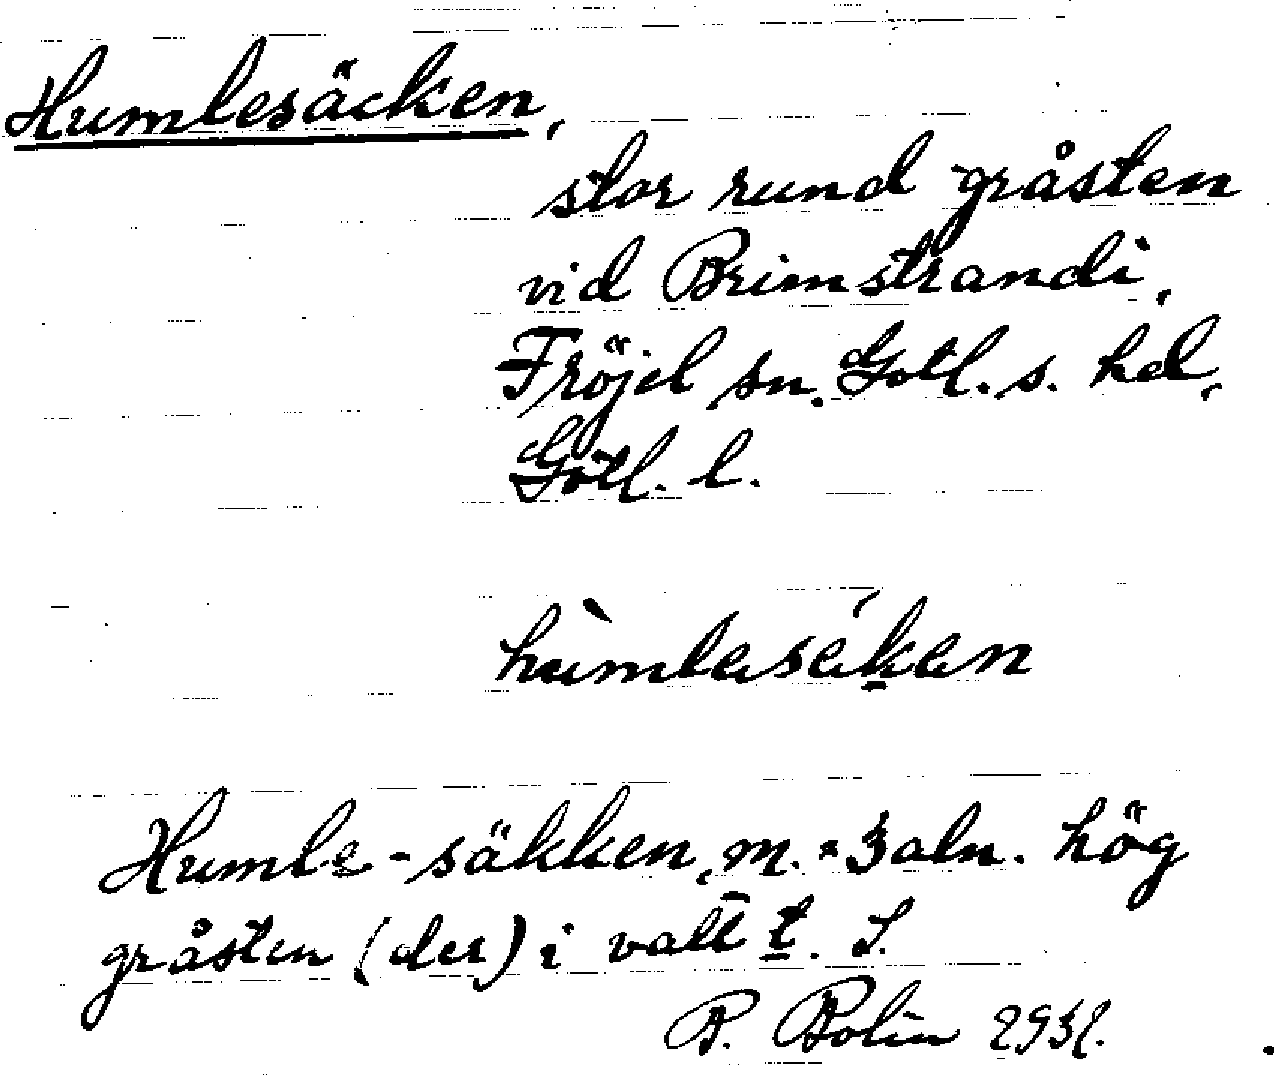 Humlesäcken,
stor rund gråsten
vid Brimstrandi,
Fröjel sn. Gotl. s. hd,
Gotl. l.
hùmlasákan
Humle-säkken, m. = 3 aln. hög
gråsten (der) i vatt t. S.
P. Bolin